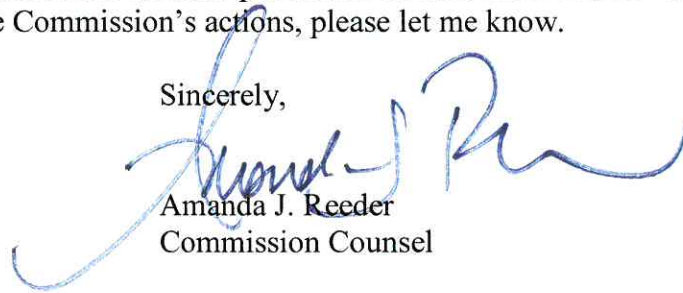 e Commission's actions, please let me know.
Sincerely,
Amanda J. Reeder
Commission Counsel